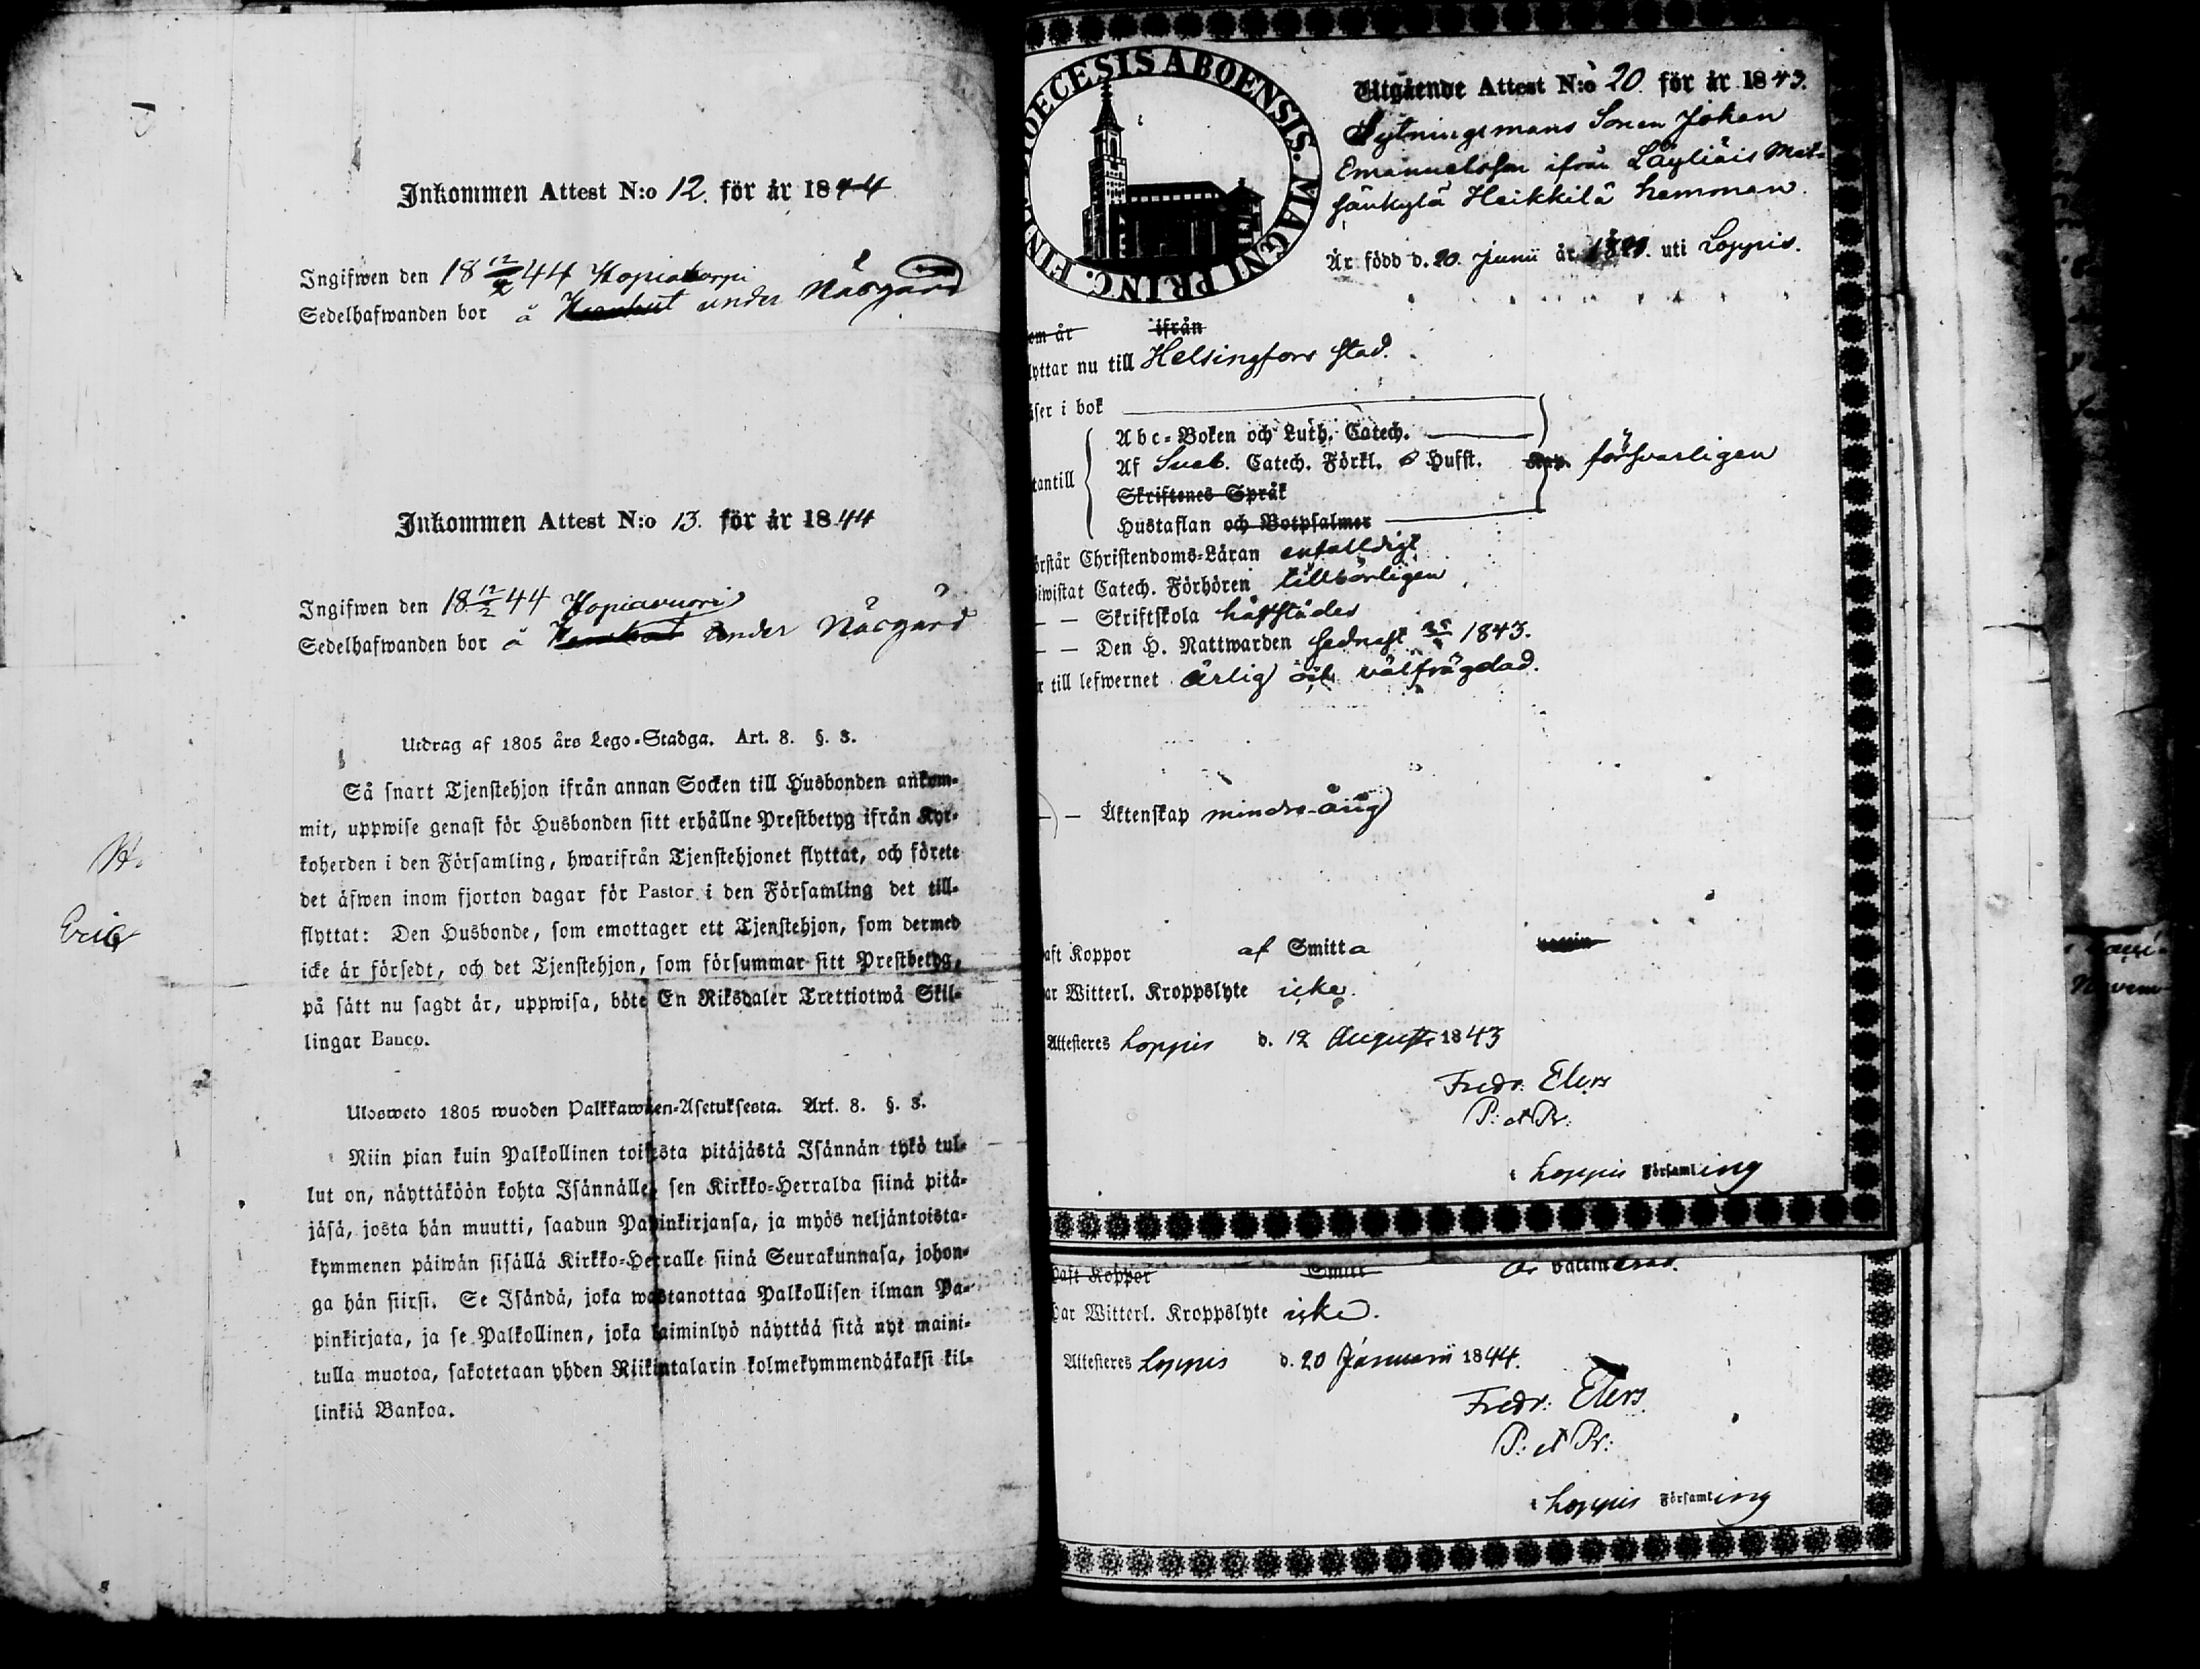 Inkommen Attest N:o 12. för år 1844
Ingifwen den 18 12/2 44 Kopiakorpi
Sedelhafwanden bor å under Näsgård
Inkommen Attest N:o 13. för år 1844
Ingifwen den 18 12/2 44 Kopiavuori
Sedelhafwanden bor å under Näsgård
Utdrag af 1805 års Lego-Stadga. Art. 8. §. 3.
Så snart Tjenstehjon ifrån annan Socken till Husbonden ankom-
mit, uppwise genast för Husbonden sitt erhållne Prestbetyg ifrån Kyr-
koherden i den Församling, hwarifrån Tjenstehjonet flyttat, och förete
det äfwen inom fjorton dagar för Pastor i den Församling det till-
flyttat: Den Husbonde, som emottager ett Tjenstehjon, som dermed
icke är försedt, och det Tjenstehjon, som försummar sitt Prestbetyg,
på sätt nu sagdt är, uppwisa, böte En Riksdaler Trettiotwå Skil-
lingar Banco.
H.
Eric
Ulosweto 1805 wuoden Palkkawäen-Asetuksesta. Art. 8. §. 3.
Niin pian kuin Palkollinen toisesta pitäjästä Isännän tykö tul-
lut on, näyttäköön kohta Isännälle, sen Kirkko-Herralda siinä pitä-
jäsä, josta hän muutti, saadun Papinkirjansa, ja myös neljäntoista-
kymmenen päiwän sisällä Kirkko-Herralle siinä Seurakunnasa, johon-
ga hän siirsi. Se Isändä, joka wastanottaa Palkollisen ilman Pa-
pinkirjata, ja se Palkollinen, joka laiminlyö näyttää sitä nyt maini-
tulla muotoa, sakotetaan yhden Riikintalarin kolmekymmendäkaksi kil-
linkiä Bankoa.
DIOECESIS ABOENSIS. MAGNI PRINC. FINL.
Utgående Attest N:o 20 för år 1843.
Sytningsmans Sonen Johan
Emanuelsson ifrån Läyliäis Met-
sänkylä Heikkilä hemman.
Är född d. 20. Junii år uti Loppis.
om år ifrån
lyttar nu till Helsingfors stad.
äser i bok
Abc-Boken och Luth. Catech.
Af Sveb. Catech. Förkl. o Hufst. försvarligen
tantill
Skriftenes Språk
Hustaflan och Botpsalmer
örstår Christendoms-Läran enfalldigt
iwistat Catech. Förhören tillbörligen
— — Skriftskola härstädes
— — Den H. Nattwarden sednast 1843.
r till lefwernet ärlig och välfrägdad.
— Äktenskap mindre-årig
aft Koppor af Smitta
ar Witterl. Kroppslyte icke.
Attesteres Loppis d. 12 Augusti 1843
Fredr. Elers
P: et Pr:
i Loppis Församling
haft Koppor Smitt är vaccinerad.
har Witterl. Kroppslyte icke.
Attesteres Loppis d. 20 Januarii 1844.
Fredr: Elers
P: et Pr:
i Loppis Församling